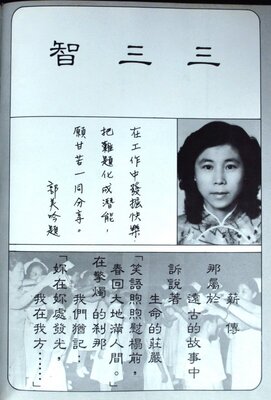 三三智
在工作中發掘快樂
把難題化成潛能，
願甘苦一同分享。
郭美吟題
薪傳
那屬於
遠古的故事中
訴說著
生命的莊嚴
「笑語煦煦慰榻前，
春回大地滿人間。」
在擎燭的剎那
我們猶記：
「妳在妳處發光，
我在我方……」